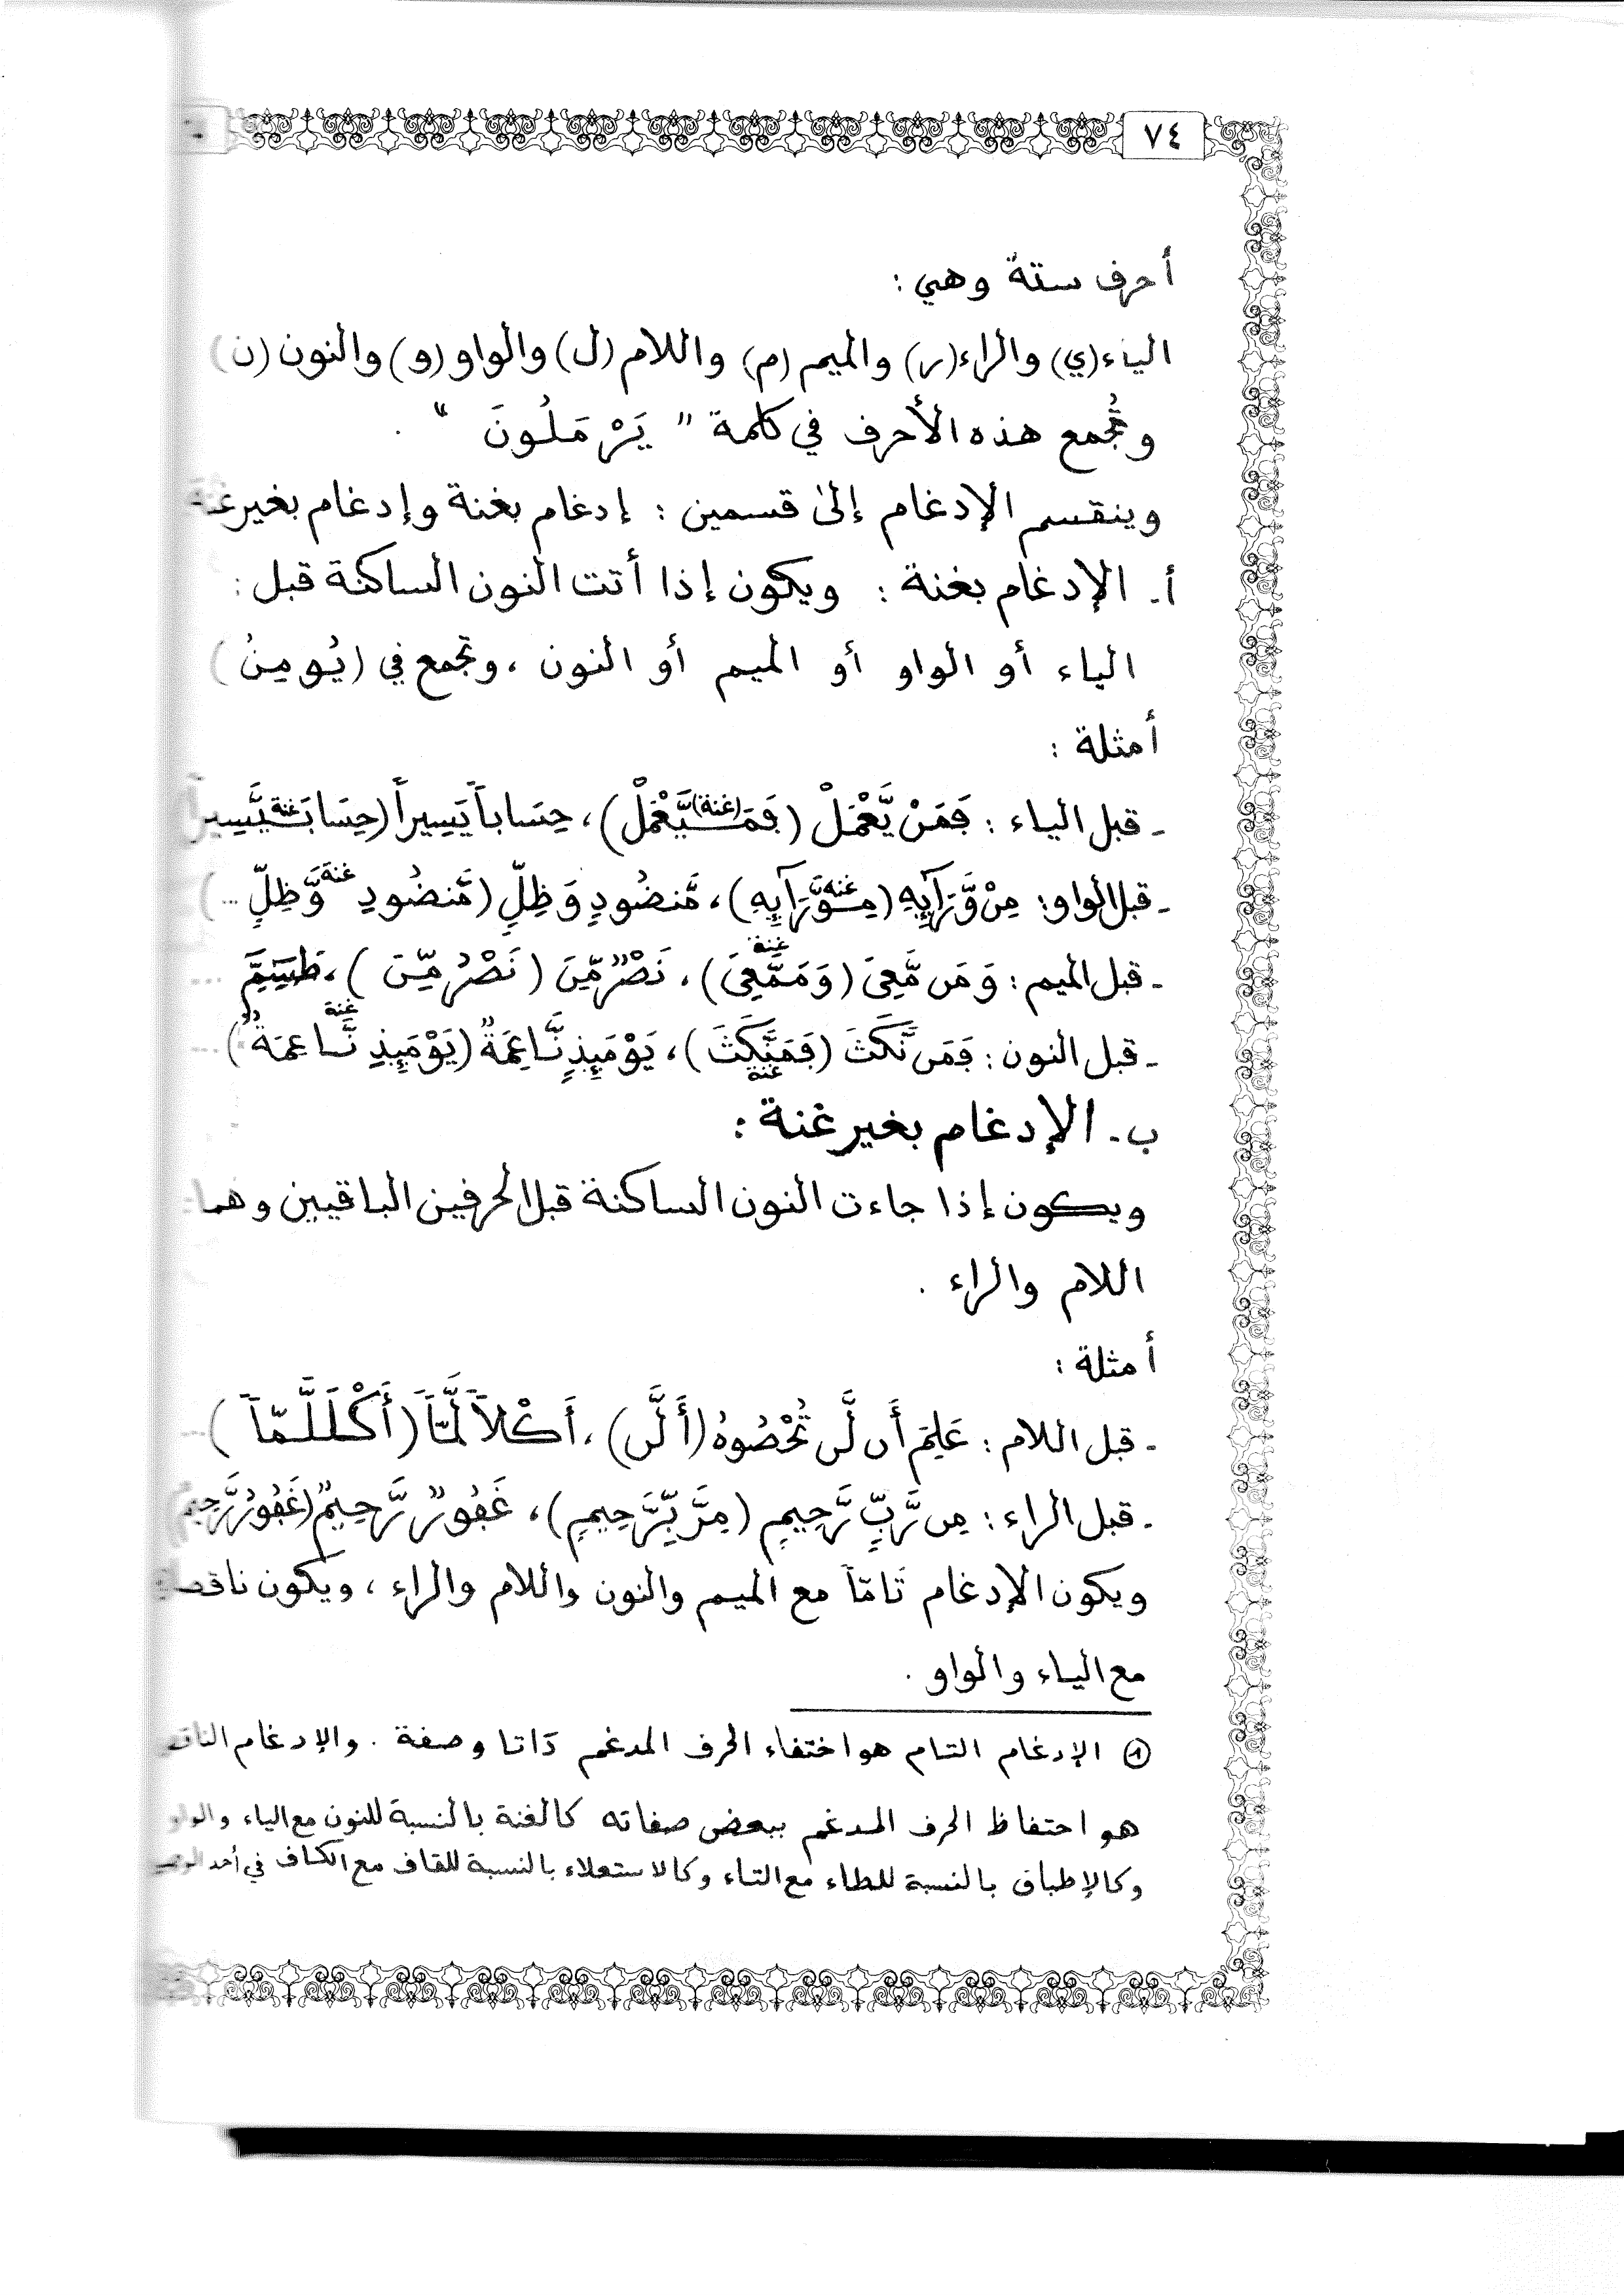 ٧٤
أحرف ستة وهي :
الياء (ي) والراء (ر) والميم (م) واللام (ل) والواو (و) والنون (ن)
وتُجمع هذه الأحرف في كلمة " يَرْمَلُونَ " .
وينقسم الإدغام إلى قسمين : إدغام بغنة وإدغام بغير غنة
أ ـ الإدغام بغنة : ويكون إذا أتت النون الساكنة قبل :
الياء أو الواو أو الميم أو النون ، وتجمع في (يُومِنُ)
أمثلة :
ـ قبل الياء : فَمَنْ يَّعْمَلْ (فَمَـ(غنة)ـيَّعْمَلْ) ، حِسَاباً يَسِيراً (حِسَابَـغنةـيَّسِيراً
ـ قبل الواو : مِنْ وَّرَآئِهِ (مِـغنةـوَّرَآئِهِ) ، مَّنضُودٍ وَظِلٍّ (مَّنضُودِ غنة وَّظِلٍّ ...)
ـ قبل الميم : وَمَن مَّعِيَ (وَمَـغنةـمَّعِيَ) ، نَصْرٌ مِّنَ (نَصْرُ مِّنَ) ، طَسِيمِّمَّ ...
ـ قبل النون : فَمَن نَّكَثَ (فَمَنَّكَثَ) غنة ، يَوْمَئِذٍ نَّاعِمَةٌ (يَوْمَئِذِ غنة نَّاعِمَةٌ) ...
ب ـ الإدغام بغير غنة :
ويكون إذا جاءت النون الساكنة قبل الحرفين الباقيين وهما
اللام والراء .
أمثلة :
ـ قبل اللام : عَلِمَ أَن لَّن تُحْصُوهُ (أَلَّن) ، أَكْلاً لَّمّاً (أَكْلَلَّمّاً) ...
ـ قبل الراء : مِن رَّبٍّ رَّحِيمٍ (مِرَّبِّرَّحِيمٍ) ، غَفُورٌ رَّحِيمٌ (غَفُورُرَّحِيمٌ)
ويكون الإدغام تَامّاً مع الميم والنون واللام والراء ، ويكون ناقصاً
مع الياء والواو .
① الإدغام التام هو اختفاء الحرف المدغم ذَاتا وصفة . والإدغام الناقص
هو احتفاظ الحرف المدغم ببعض صفاته كالغنة بالنسبة للنون مع الياء والواو
وكالإطباق بالنسبة للطاء مع التاء وكالاستعلاء بالنسبة للقاف مع الكاف في أحد